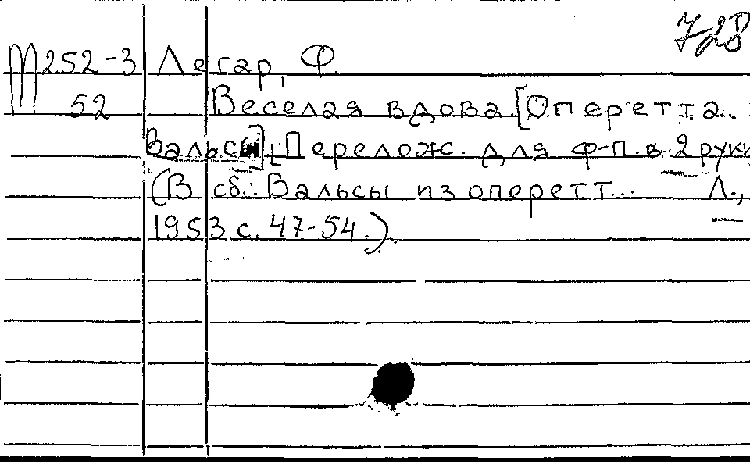 728
М252-3 Легар, Ф.
52 Веселая вдова [Оперетта.
Вальсы]. Перелож. для ф-п. в 2 руки
(В сб.: Вальсы из оперетт... Л.,
1953 с. 47-54.)